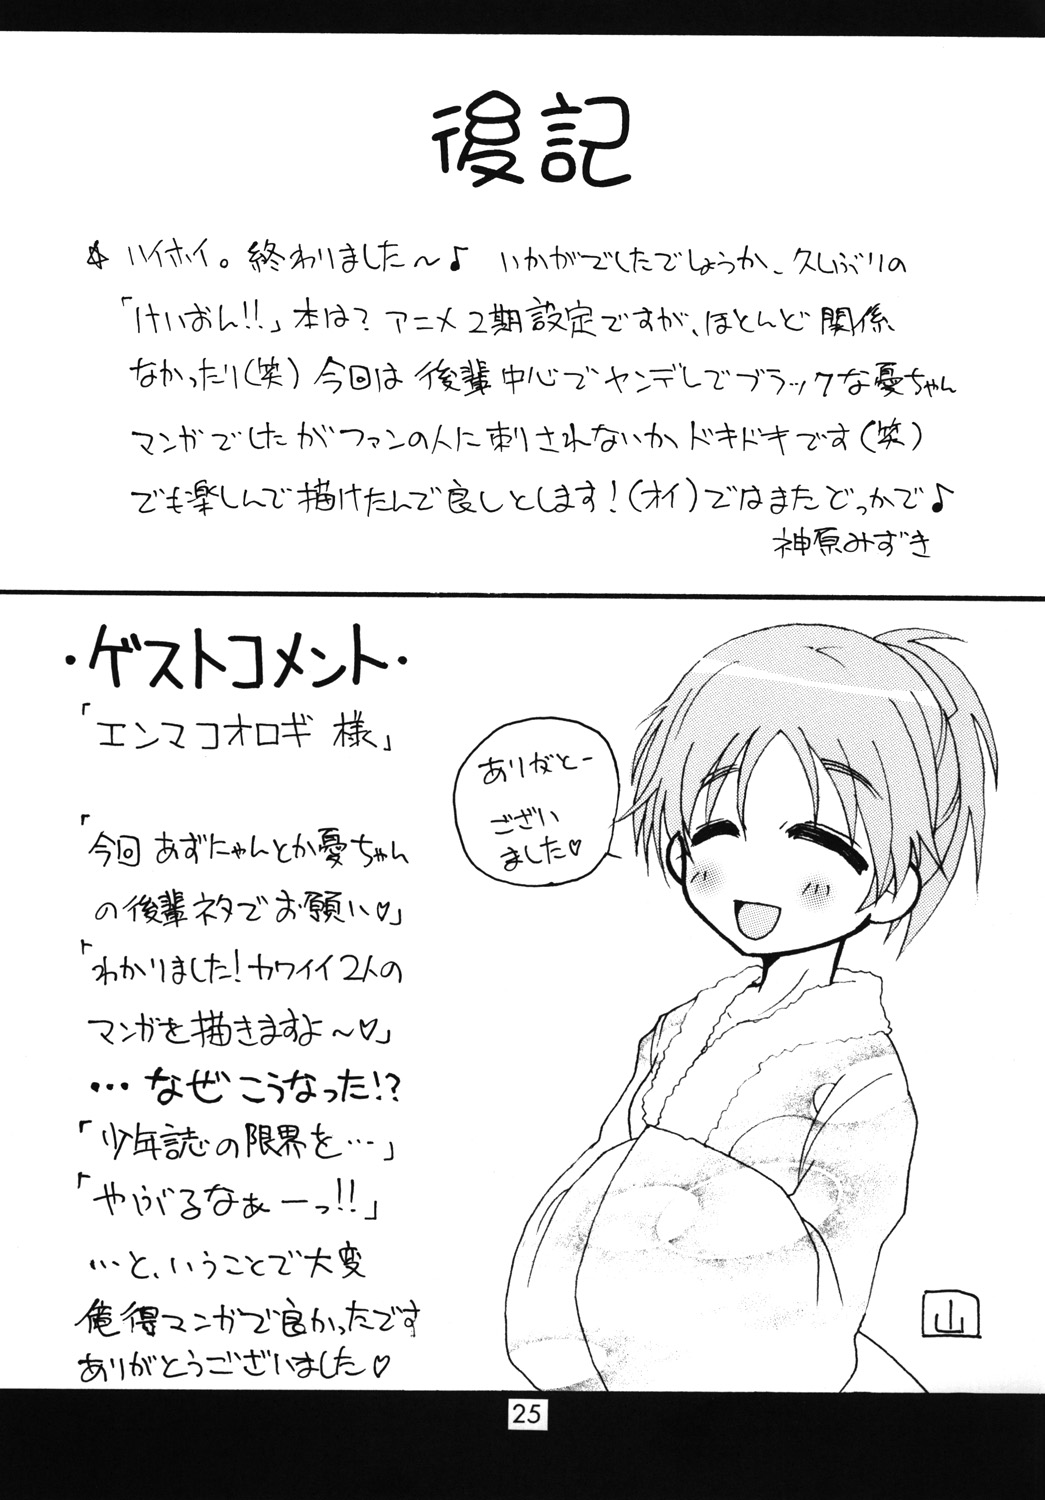 後記
☆ ハイホイ。終わりました～♪ いかがでしたでしょうか、久しぶりの
「けいおん!!」本は？アニメ2期設定ですが、ほとんど関係
なかったり(笑) 今回は後輩中心でヤンデレでブラックな憂ちゃん
マンガでしたがファンの人に刺されないかドキドキです(笑)
でも楽しんで描けたんで良しとします！(オイ)ではまたどっかで♪
神原みずき
・ゲストコメント・
「エンマコオロギ 様」
「今回あずにゃんとか憂ちゃん
の後輩ネタでお願い♡」
「わかりました！カワイイ2人の
マンガを描きますよ～♡」
…なぜこうなった!?
「少年誌の限界を…」
「やぶるなぁーっ!!」
…と、いうことで大変
俺得マンガで良かったです
ありがとうございました♡
ありがとー
ござい
ました♡
山
25